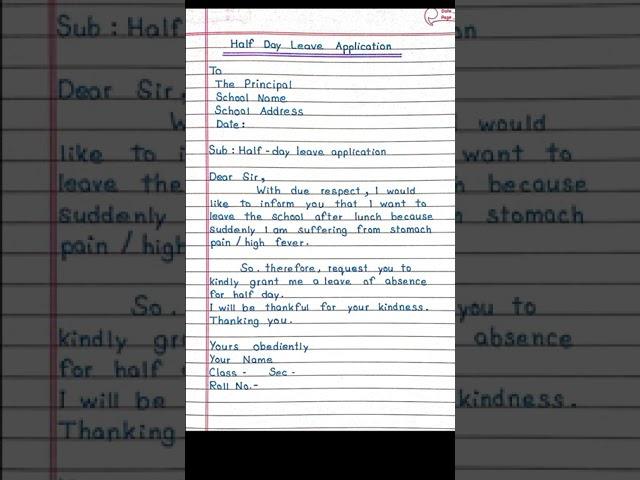 Date
Page
Half Day Leave Application
To
The Principal
School Name
School Address
Date:
Sub: Half-day leave application
Dear Sir,
With due respect, I would
like to inform you that I want to
leave the school after lunch because
suddenly I am suffering from stomach
pain / high fever.
So. therefore, request you to
kindly grant me a leave of absence
for half day.
I will be thankful for your kindness.
Thanking you.
Yours obediently
Your Name
Class - Sec -
Roll No.-